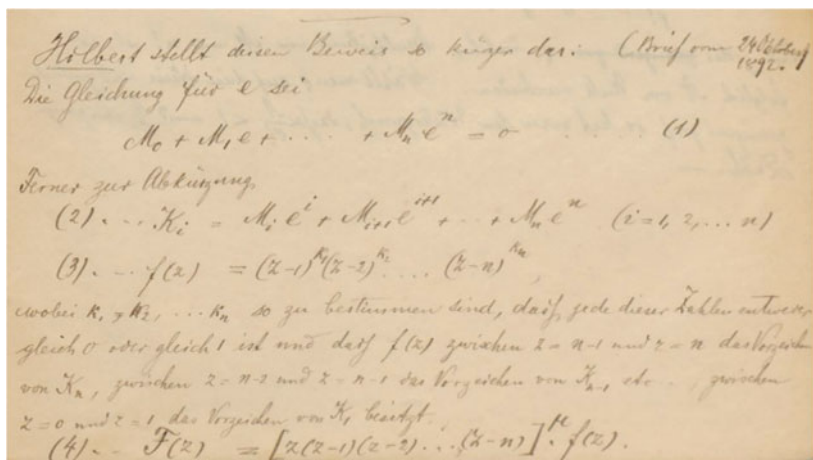 Hilbert stellt diesen Beweis so kürzer dar: (Brief vom 24 Oktober 1892.)
Die Gleichung für e sei
M₀ + M₁e + .... + Mₙeⁿ = 0 ... (1)
Ferner zur Abkürzung,
(2) ... Kᵢ = Mᵢeⁱ + Mᵢ₊₁eⁱ⁺¹ + ... + Mₙeⁿ (i=1, 2, ... n)
(3) ... f(z) = (z-1)^κ₁ (z-2)^κ₂ .... (z-n)^κₙ,
wobei κ₁, κ₂, ... κₙ so zu bestimmen sind, daß jede dieser Zahlen entweder
gleich 0 oder gleich 1 ist und daß f(z) zwischen z = n-1 und z = n das Vorzeichen
von Kₙ, zwischen z = n-2 und z = n-1 das Vorzeichen von Kₙ₋₁ etc ..., zwischen
z = 0 und z = 1 das Vorzeichen von K₁ besitzt.
(4) ... F(z) = [z(z-1)(z-2)...(z-n)]^μ. f(z).